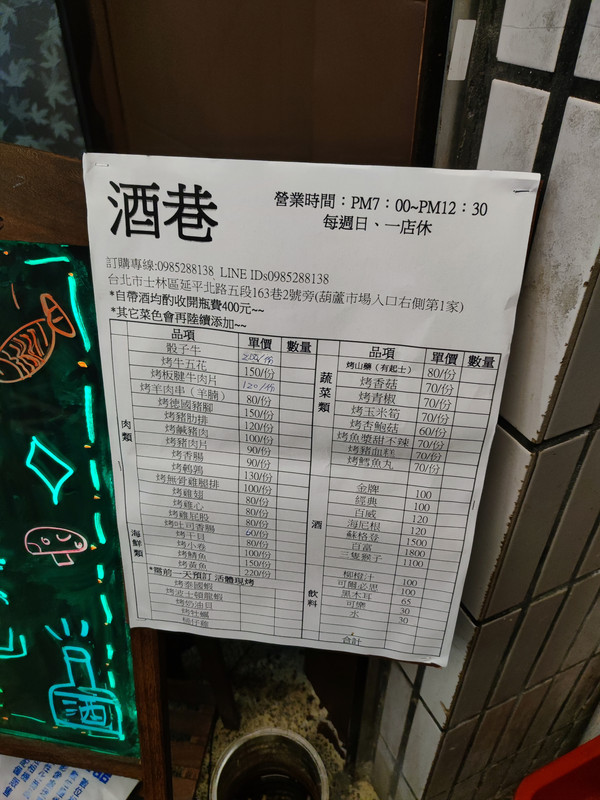 酒巷
營業時間：PM7：00~PM12：30
每週日、一店休
訂購專線:0985288138 LINE IDs0985288138
台北市士林區延平北路五段163巷2號旁(葫蘆市場入口右側第1家)
*自帶酒均酌收開瓶費400元~~
*其它菜色會再陸續添加~~
品項 單價 數量
肉類
骰子牛 200/份
烤牛五花 150/份
烤板腱牛肉片 120/份
烤羊肉串（羊腩） 80/份
烤德國豬腳 150/份
烤豬肋排 120/份
烤鹹豬肉 100/份
烤豬肉片 90/份
烤香腸 90/份
烤鵪鶉 130/份
烤無骨雞腿排 100/份
烤雞翅 80/份
烤雞心 80/份
烤雞屁股 80/份
烤吐司香腸 60/份
海鮮類
烤干貝 80/份
烤小卷 100/份
烤鯖魚 150/份
烤黃魚 220/份
*需前一天預訂 活體現烤
烤泰國蝦
烤波士頓龍蝦
烤奶油貝
烤牡蠣
品項 單價 數量
蔬菜類
烤山藥（有起士） 80/份
烤香菇 70/份
烤青椒 70/份
烤玉米筍 70/份
烤杏鮑菇 60/份
烤魚漿甜不辣 70/份
烤豬血糕 70/份
烤鱈魚丸 70/份
酒
金牌 100
經典 100
百威 120
海尼根 120
蘇格登 1500
百富 1800
三隻猴子 1100
飲料
柳橙汁 100
可爾必思 100
黑木耳 65
可樂 30
水 30
合計
酒